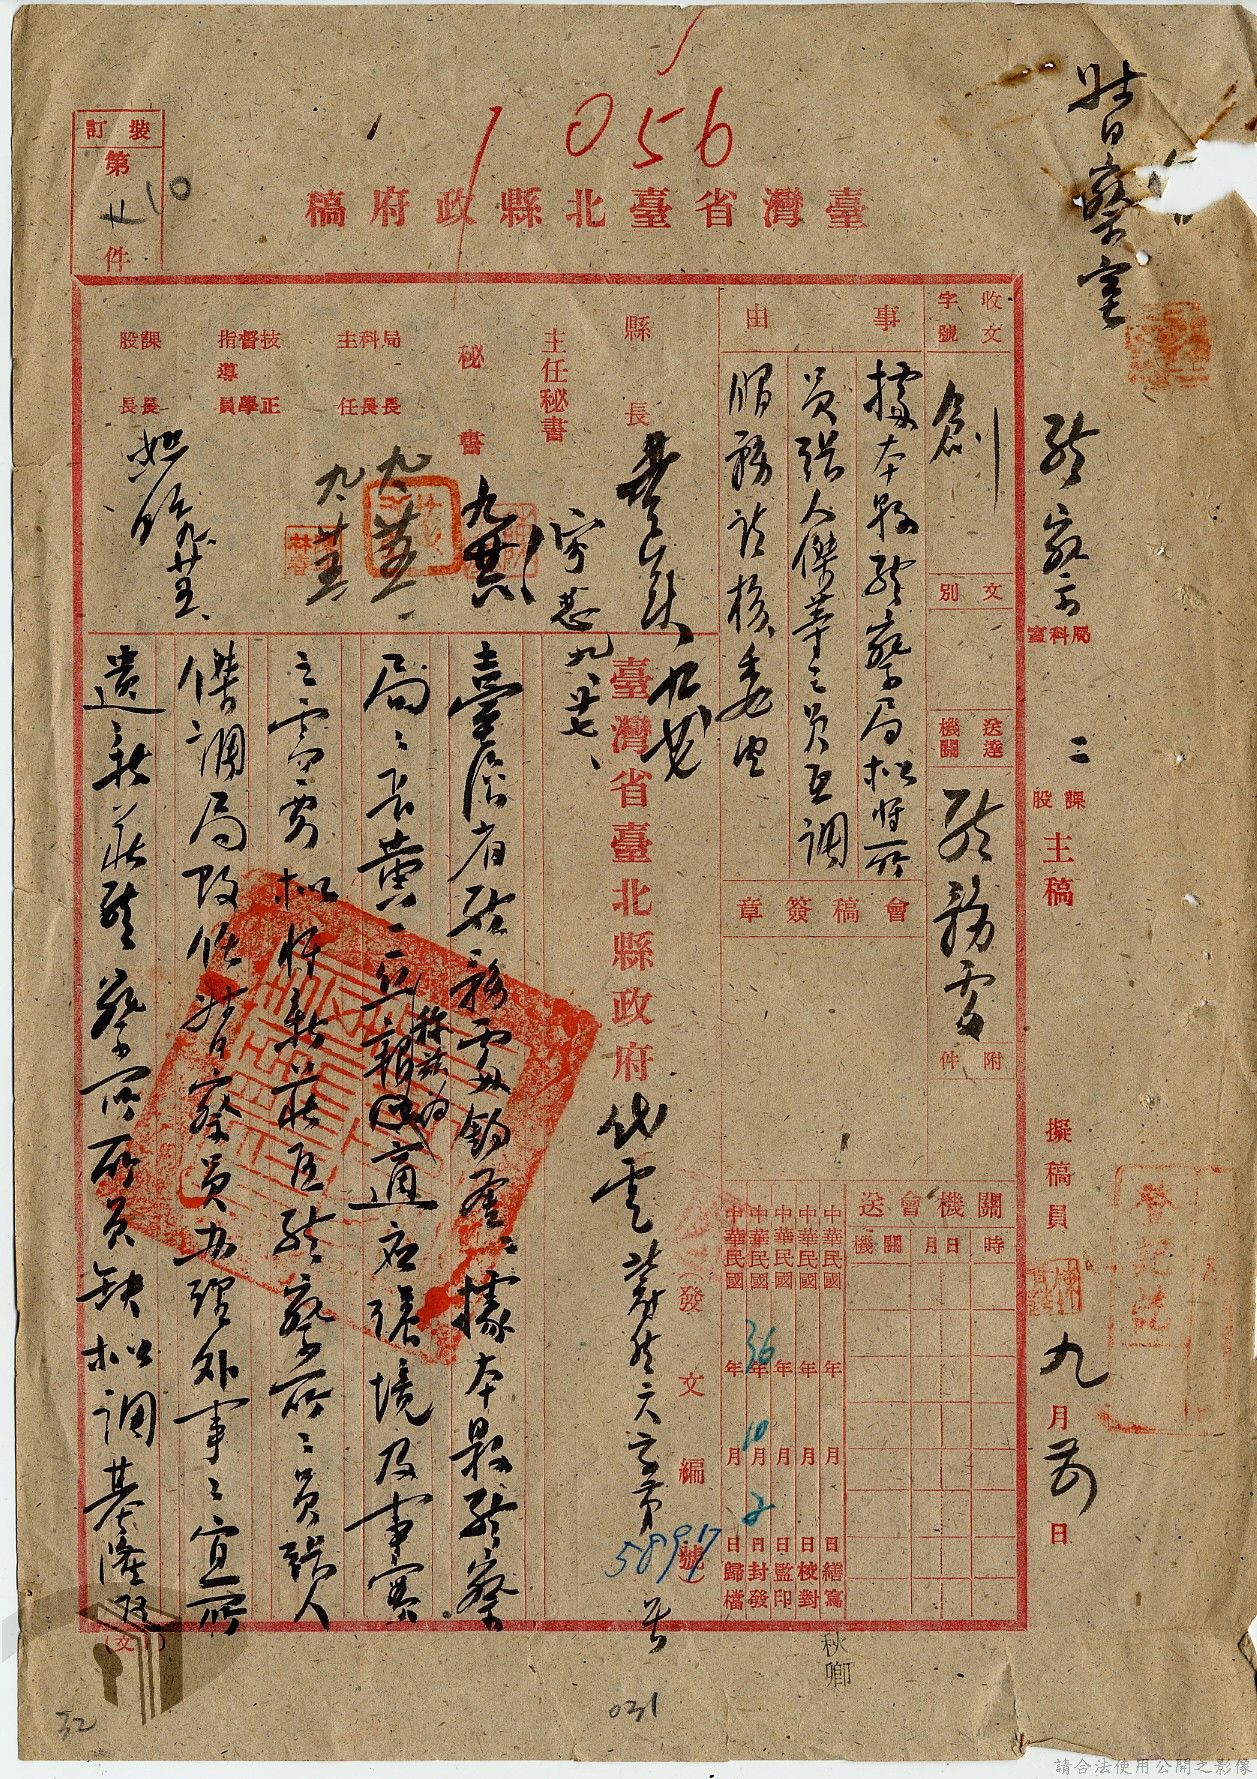 1056
裝訂
第
10
件
臺灣省臺北縣政府稿
督察室
警察局
局科室
二
課股
主稿
擬稿員
九月
日
收文
字號
創
文別
送達機關
警務處
附件
事由
據本縣警察局擬將所
員張人傑等二員互調
服務請核委由
會稿簽章
關機會送
時
月日
機關
中華民國 年 月 日繕寫
中華民國 年 月 日校對
中華民國 年 月 日監印
中華民國36年10月2日封發
中華民國 年 月 日歸檔
縣長
主任秘書
九、廿七、
秘書
局科主
長長任
技督指導
正學員
課股
長長
臺灣省臺北縣政府代電
(發文編號)
58917
號
臺灣省警務處鈞鑒:據本縣警察
局局長黃
報稱茲為適應環境及事實
之需要擬將新莊區警察所所員張人
傑調局改任督察員辦理外事事宜所
遺新莊警察所所員缺擬調基隆
秋卿
031
32
請合法使用公開之影像